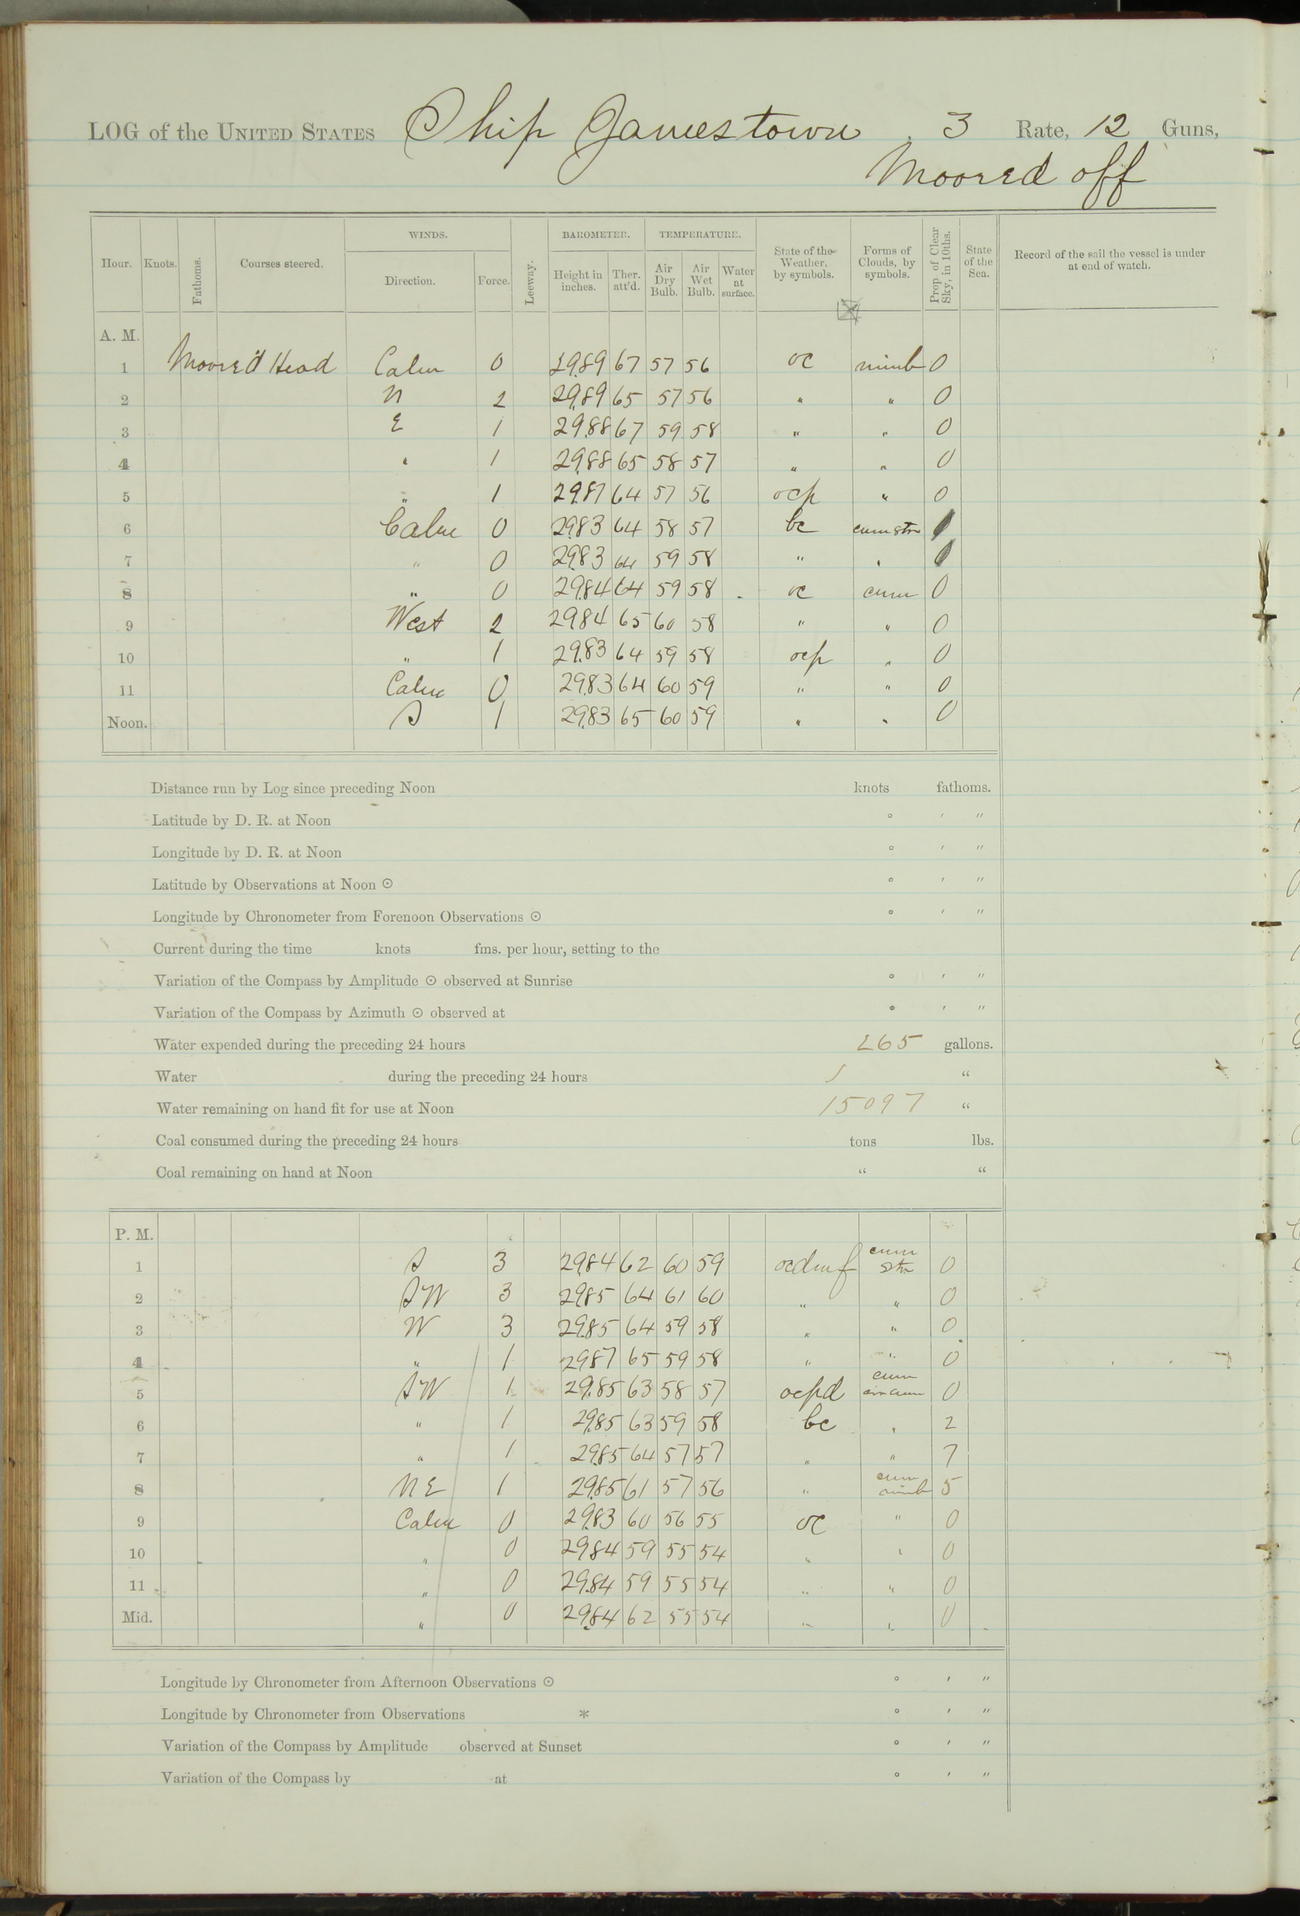 LOG of the UNITED STATES Ship Jamestown, 3 Rate, 12 Guns,
Moored off
Hour. Knots. Fathoms. Courses steered. WINDS. Direction. Force. Leeway. BAROMETER. Height in inches. Ther. att'd. TEMPERATURE. Air Dry Bulb. Air Wet Bulb. Water at surface. State of the Weather, by symbols. Forms of Clouds, by symbols. Prop. of Clear Sky, in 10ths. State of the Sea. Record of the sail the vessel is under at end of watch.
A. M.
1 Moored Head Calm 0 29.89 67 57 56 oc nimb 0
2 N 2 29.89 65 57 56 " " 0
3 E 1 29.88 67 59 58 " " 0
4 " 1 29.88 65 58 57 " " 0
5 " 1 29.87 64 57 56 ocp " 0
6 Calm 0 29.83 64 58 57 bc cum str
7 " 0 29.83 64 59 58 " "
8 " 0 29.84 64 59 58 oc cum 0
9 West 2 29.84 65 60 58 " " 0
10 " 1 29.83 64 59 58 ocp " 0
11 Calm 0 29.83 64 60 59 " " 0
Noon. S 1 29.83 65 60 59 " " 0
Distance run by Log since preceding Noon knots fathoms.
Latitude by D. R. at Noon ° ′ ″
Longitude by D. R. at Noon ° ′ ″
Latitude by Observations at Noon ☉ ° ′ ″
Longitude by Chronometer from Forenoon Observations ☉ ° ′ ″
Current during the time knots fms. per hour, setting to the
Variation of the Compass by Amplitude ☉ observed at Sunrise ° ′ ″
Variation of the Compass by Azimuth ☉ observed at ° ′ ″
Water expended during the preceding 24 hours 265 gallons.
Water during the preceding 24 hours "
Water remaining on hand fit for use at Noon 15097 "
Coal consumed during the preceding 24 hours tons lbs.
Coal remaining on hand at Noon " "
P. M.
1 S 3 29.84 62 60 59 ocdmf cum str 0
2 SW 3 29.85 64 61 60 " " 0
3 W 3 29.85 64 59 58 " " 0
4 " 1 29.87 65 59 58 " " 0
5 SW 1 29.85 63 58 57 ocpd cum cir cum 0
6 " 1 29.85 63 59 58 bc " 2
7 " 1 29.85 64 57 57 " " 7
8 NE 1 29.85 61 57 56 " cum nimb 5
9 Calm 0 29.83 60 56 55 oc " 0
10 " 0 29.84 59 55 54 " " 0
11 " 0 29.84 59 55 54 " " 0
Mid. " 0 29.84 62 55 54 " " 0
Longitude by Chronometer from Afternoon Observations ☉ ° ′ ″
Longitude by Chronometer from Observations * ° ′ ″
Variation of the Compass by Amplitude observed at Sunset ° ′ ″
Variation of the Compass by at ° ′ ″